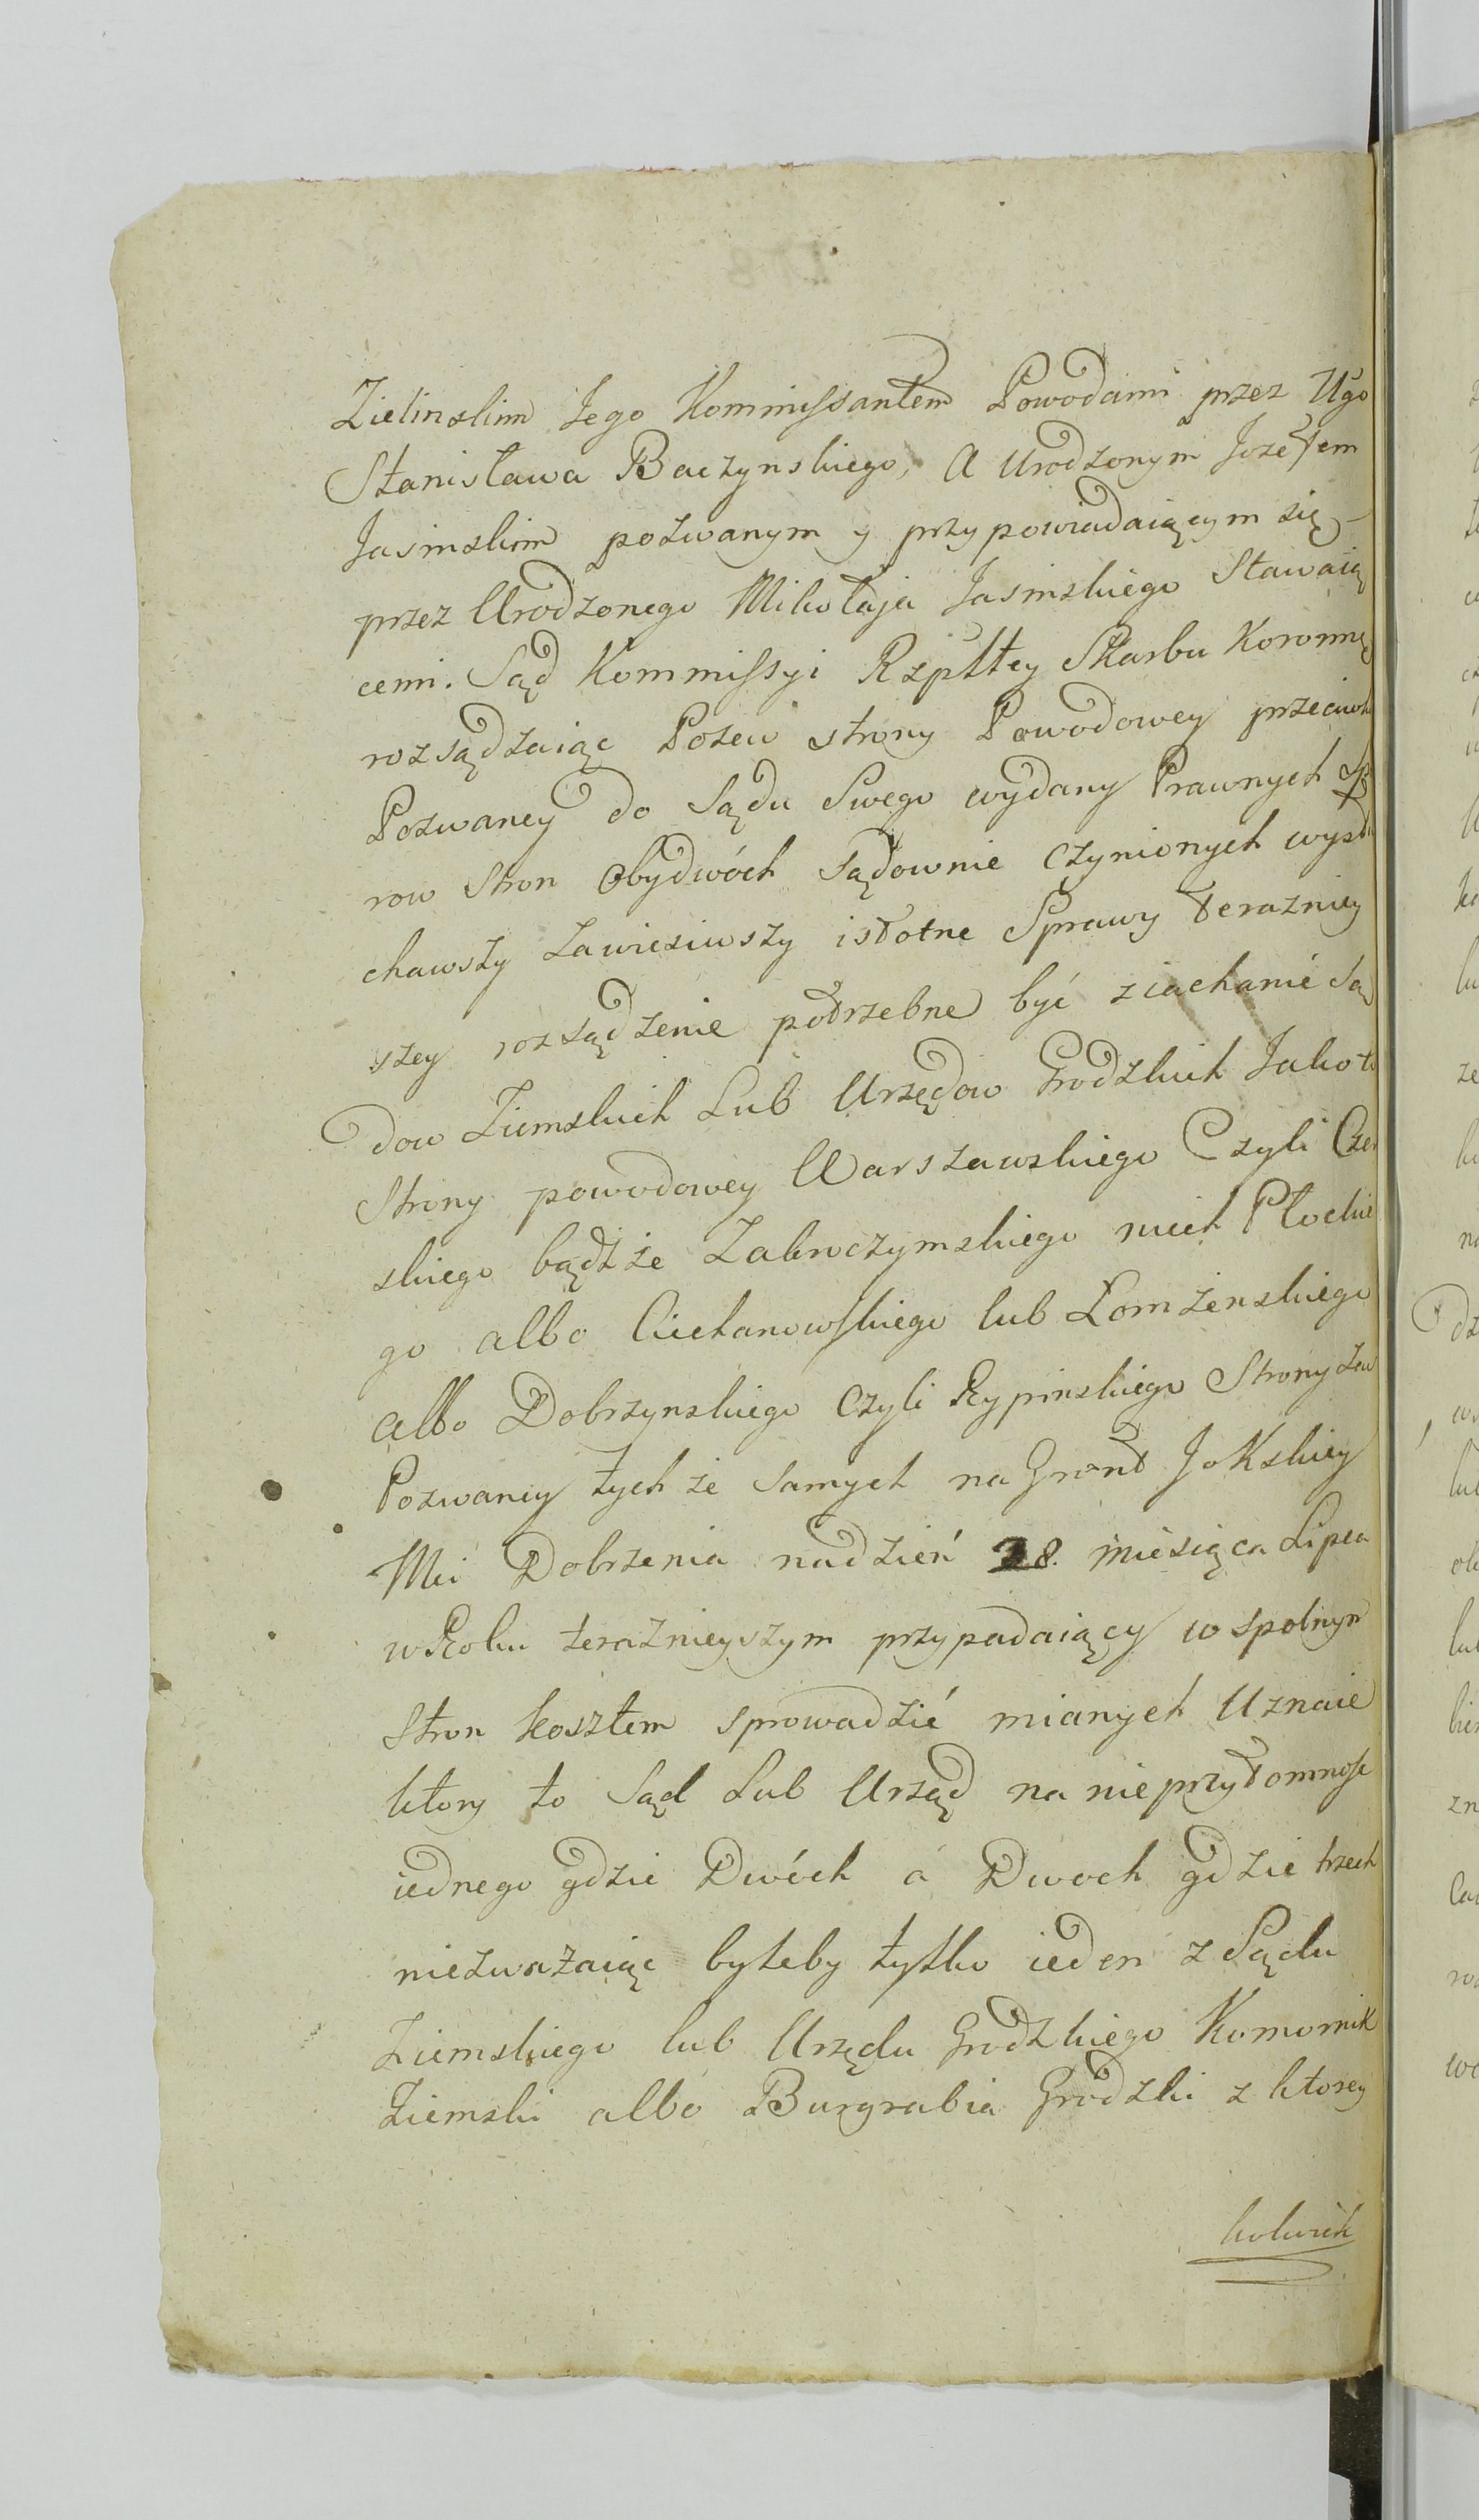 Zielinskim Jego Kommissantem Powodami przez Ugo
Stanisława Baczynskiego, A Urodzonym Jozefem
Jasinskim pozwanym y przypowiadaiącym się
przez Urodzonego Mikołaja Jasinskiego Stawaią
cemi. Sąd Kommissyi Rzpttey Skarbu Koronne
rozsądzaiąc Pozew strony Powodowey przeciwko
Pozwaney do Sądu Swego wydany Prawnych Sp
row Stron Obydwóch Sądownie czynionych wysłu
chawszy Zawiesiwszy istotne Sprawy terazniey
szey rozsądzenie potrzebne być ziachanie Są
dow Ziemskich Lub Urzędow Grodzkich Jako to
Strony powodowey Warszawskiego Czyli Czer
skiego bądź że Zakroczymskiego niech Płockie
go albo Ciechanowskiego lub Łomżenskiego
albo Dobrzynskiego Czyli Rypinskiego Strony zaś
Pozwaney tych że samych na Grunt JoKskiey
Mci Dobrzenia nadzień 28. miesiąca Lipca
w Roku teraznieyszym przypadaiący wspolnym
stron kosztem sprowadzić mianych Uznaie
ktory to Sąd Lub Urząd na nieprzytomnosc
iednego gdzie Dwóch á Dwoch gdzie trzech
niezważaiąc byleby tylko ieden z Sądu
Ziemskiego lub Urzędu Grodzkiego Komornik
Ziemski albo Burgrabia Grodzki z ktorey
kolwiek